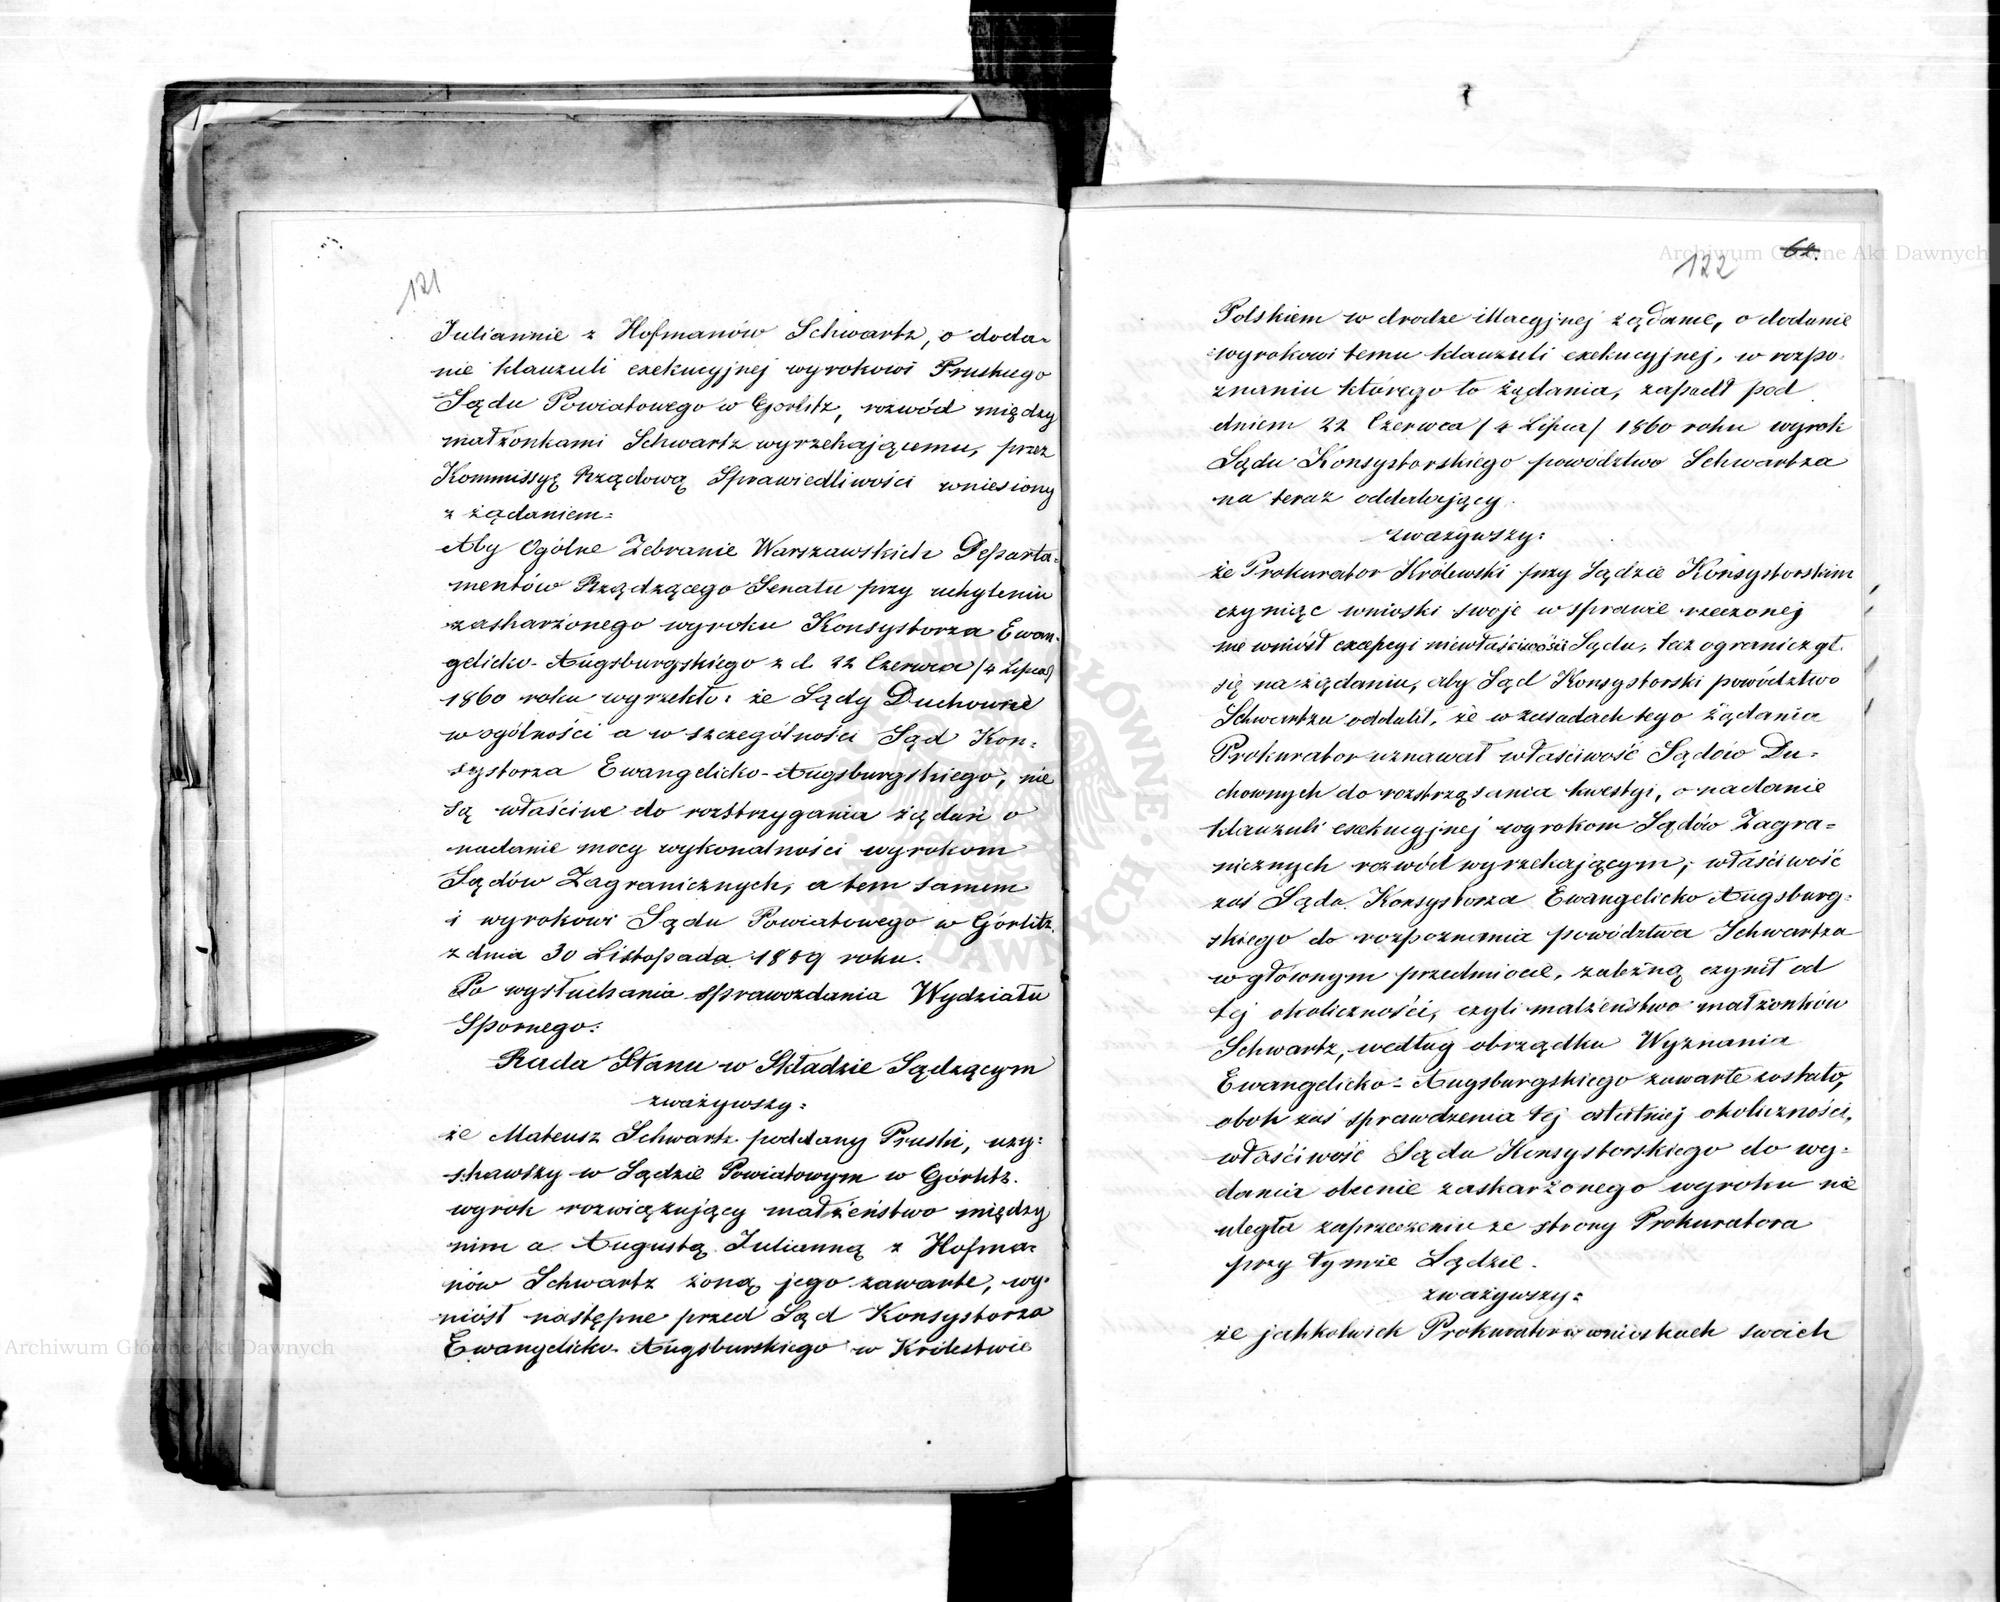 121
Juliannie z Hofmanów Schwartz, o doda-
nie klauzuli exekucyjnej wyrokowi Pruskiego
Sądu Powiatowego w Görlitz, rozwód między
małżonkami Schwartz wyrzekającemu, przez
Kommissyę Rządową Sprawiedliwości wniesiony
z żądaniem:
Aby Ogólne Zebranie Warszawskich Departa-
mentów Rządzącego Senatu przy uchyleniu
zaskarżonego wyroku Konsystorza Ewan-
gelicko-Augsburgskiego z d. 22 Czerwca /4 Lipca/
1860 roku wyrzekło: że Sądy Duchowne
w ogólności a w szczególności Sąd Kon-
systorza Ewangelicko-Augsburgskiego, nie
są właściwe do rozstrzygania żądań o
nadanie mocy wykonalności wyrokom
Sądów Zagranicznych, a tem samem
i wyrokowi Sądu Powiatowego w Görlitz
z dnia 30 Listopada 1859 roku.
Po wysłuchania sprawozdania Wydziału
Spornego:
Rada Stanu w Składzie Sądzącym
zważywszy:
że Mateusz Schwartz poddany Pruski, uzy-
skawszy w Sądzie Powiatowym w Görlitz.
wyrok rozwiązujący małżeństwo między
nim a Augustą Julianną z Hofma-
nów Schwartz żoną jego zawarte, wy-
niósł następne przed Sąd Konsystorza
Ewangelicko-Augsburskiego w Królestwie
62.
122
Polskiem w drodze illacyjnej żądanie, o dodanie
wyrokowi temu klauzuli exekucyjnej, w rozpo-
znaniu którego to żądania, zapadł pod
dniem 22 Czerwca /4 Lipca/ 1860 roku wyrok
Sądu Konsystorskiego powództwo Schwartza
na teraz oddalający.
zważywszy:
że Prokurator Królewski przy Sądzie Konsystorskim
czyniąc wnioski swoje w sprawie rzeczonej
nie wniósł excepcyi niewłaściwości Sądu, lecz ograniczył
się na żądaniu, aby Sąd Konsystorski powództwo
Schwartza oddalił, że w zasadach tego żądania
Prokurator uznawał właściwość Sądów Du-
chownych do roztrząsania kwestyi, o nadanie
klauzuli exekucyjnej wyrokom Sądów Zagra-
nicznych rozwód wyrzekającym, właściwość
zaś Sądu Konsystorza Ewangelicko Augsburg-
skiego do rozpoznania powództwa Schwartza
w głównym przedmiocie, zależną czynił od
tej okoliczności, czyli małżeństwo małżonków
Schwartz, według obrządku Wyznania
Ewangelicko-Augsburgskiego zawarte zostało,
obok zaś sprawdzenia tej ostatniej okoliczności,
właściwość Sądu Konsystorskiego do wy-
dania obecnie zaskarżonego wyroku nie
uległa zaprzeczeniu ze strony Prokuratora
przy tymże Sądzie.
zważywszy:
że jakkolwiek Prokurator w wnioskach swoich
Archiwum Główne Akt Dawnych
Archiwum Główne Akt Dawnych